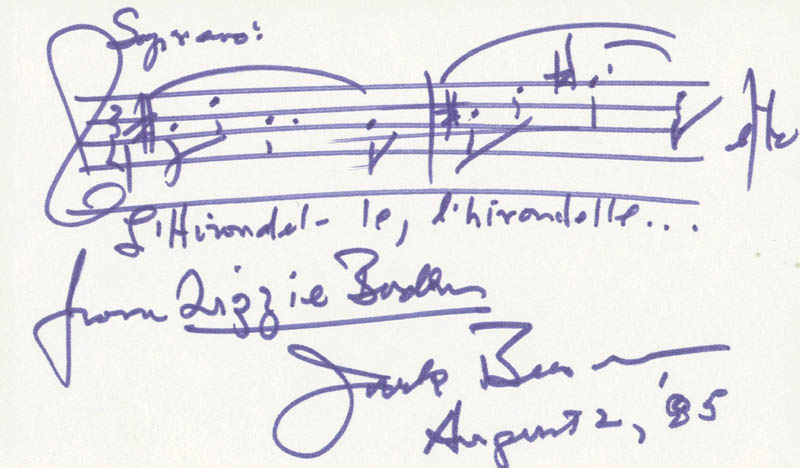 Soprano:
3
4
etc
L'Hirondel-le, l'hirondelle...
from Lizzie Borden
Jack Beeson
August 2, '85